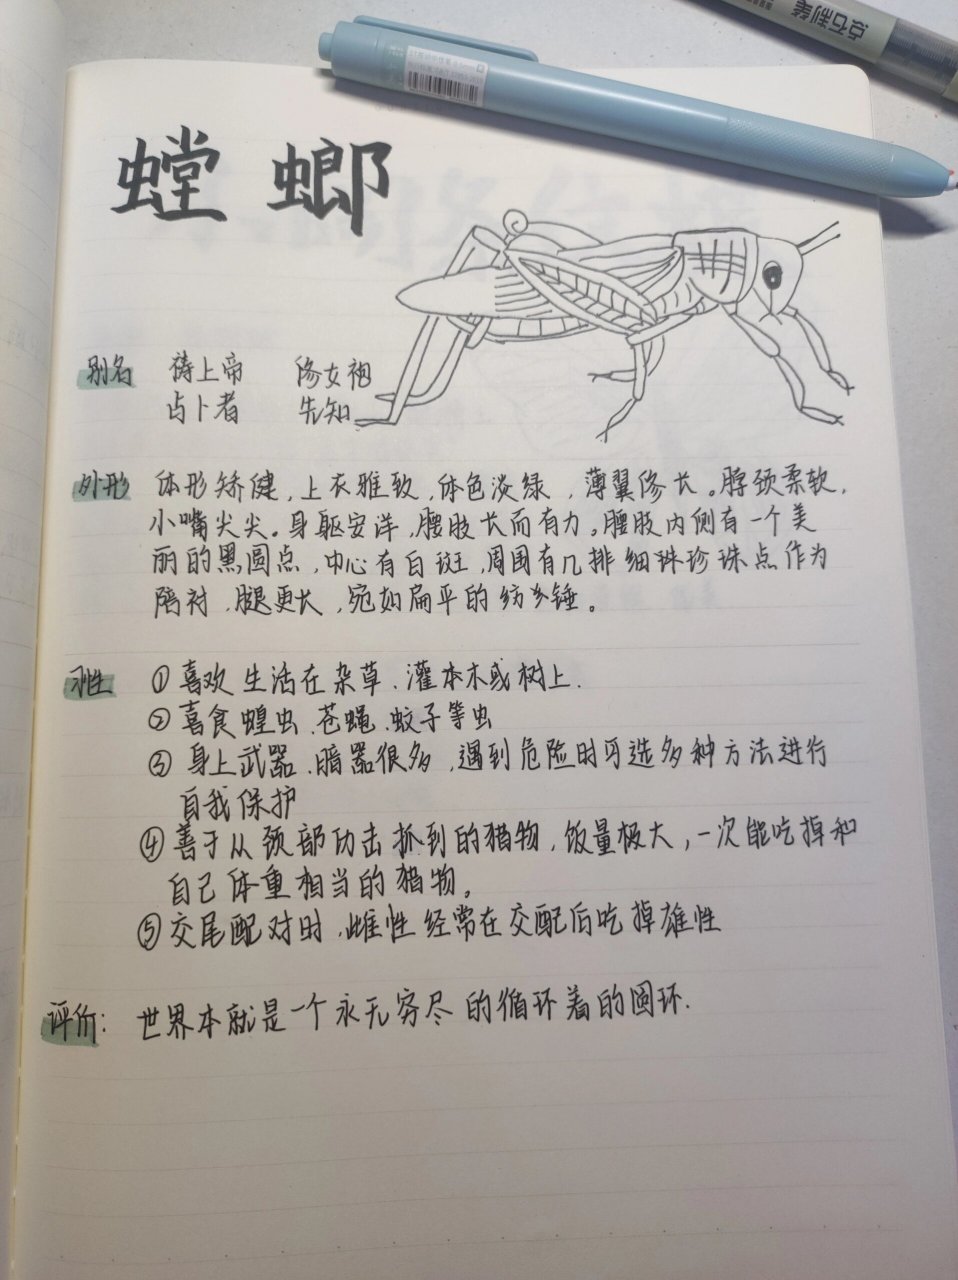 点石制笔
螳螂
别名 祷上帝 修女袍
占卜者 先知
外形 体形矫健,上衣雅致,体色淡绿,薄翼修长。脖颈柔软,
小嘴尖尖。身躯安详,腰肢长而有力。腰肢内侧有一个美
丽的黑圆点,中心有白斑,周围有几排细珠珍珠点作为
陪衬,腿更长,宛如扁平的纺乡锤。
习性 ①喜欢生活在杂草、灌本木或树上.
②喜食蝗虫、苍蝇、蚊子等虫
③身上武器、暗器很多,遇到危险时可选多种方法进行
自我保护
④善于从颈部攻击抓到的猎物,饭量极大,一次能吃掉和
自己体重相当的猎物。
⑤交尾配对时,雌性经常在交配后吃掉雄性
评价: 世界本就是一个永无穷尽的循环着的圆环.